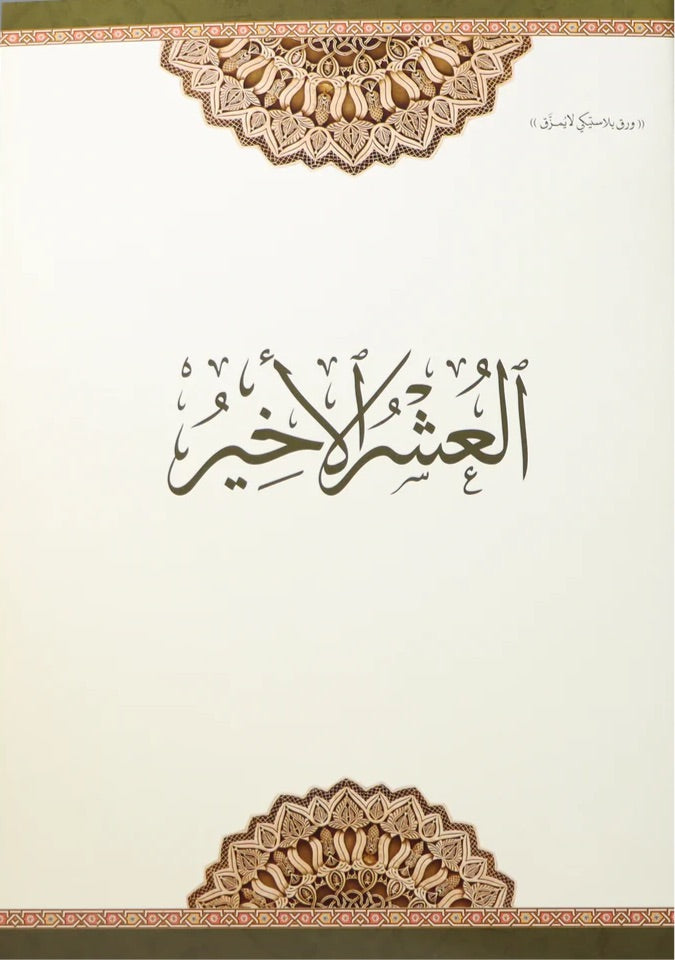 (( ورق بلاستيكي لا يُمزَّق ))
العُشْرُ الأَخِيرُ